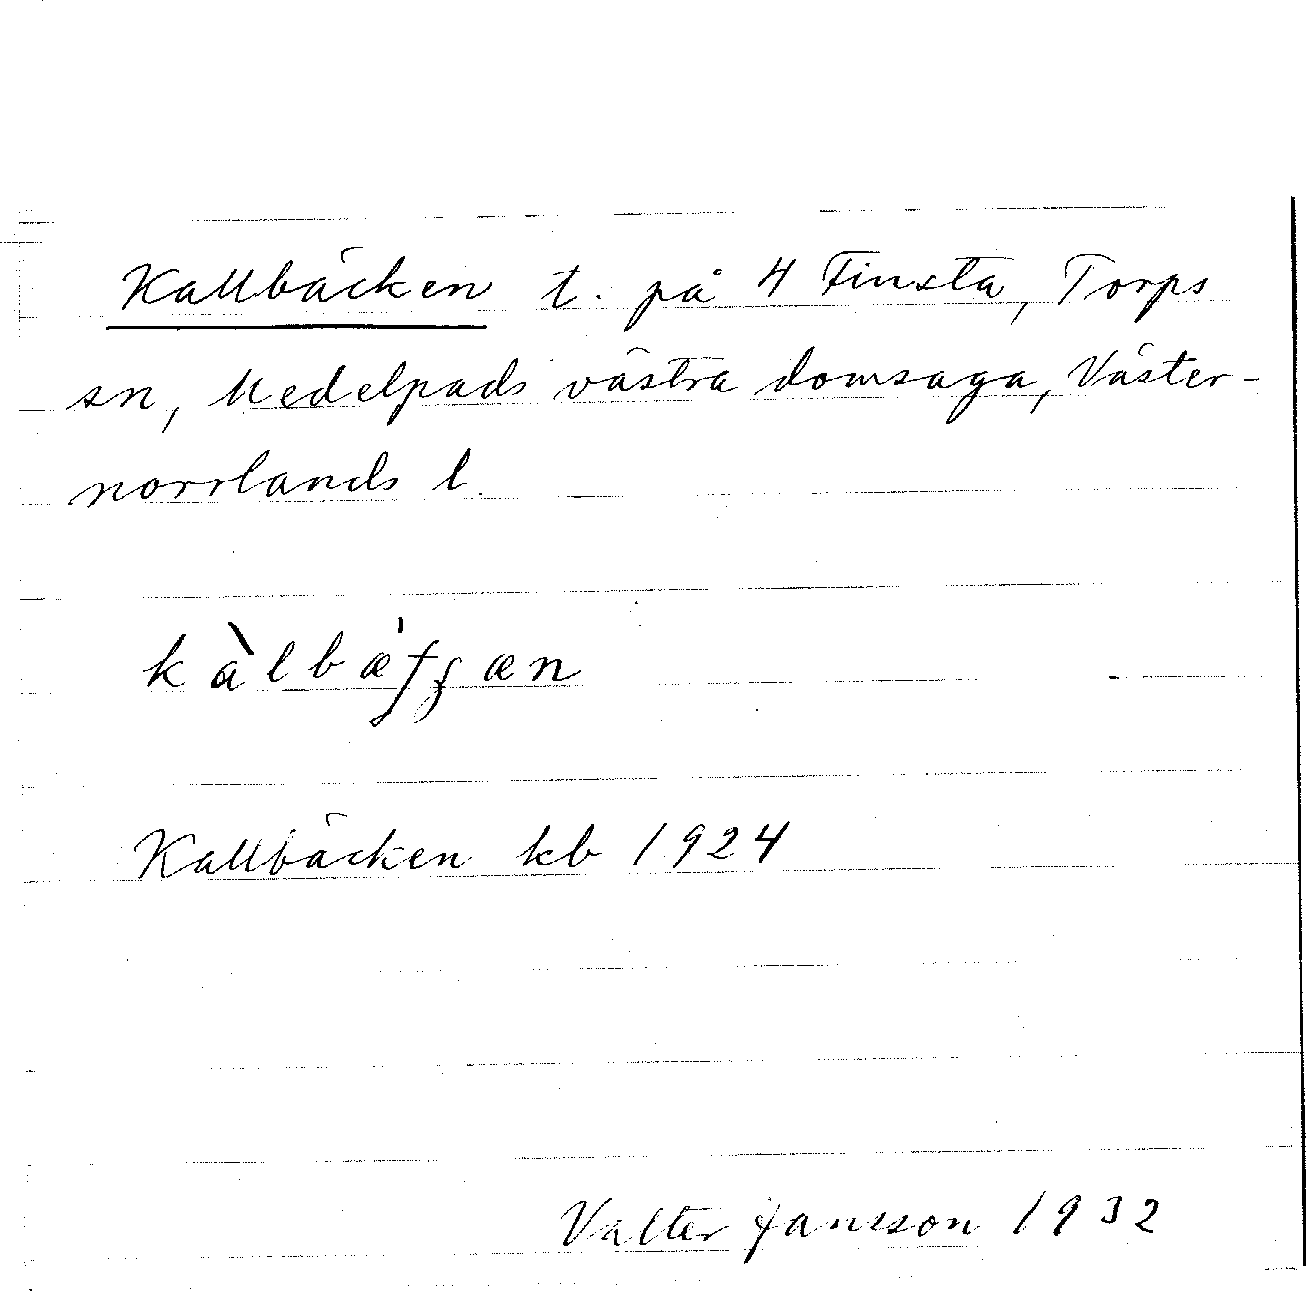 Kallbäcken t. på 4 Finsta, Torps
sn, Medelpads västra domsaga, Väster-
norrlands l.
Kallbäcken kb 1924
Valter Jansson 1932